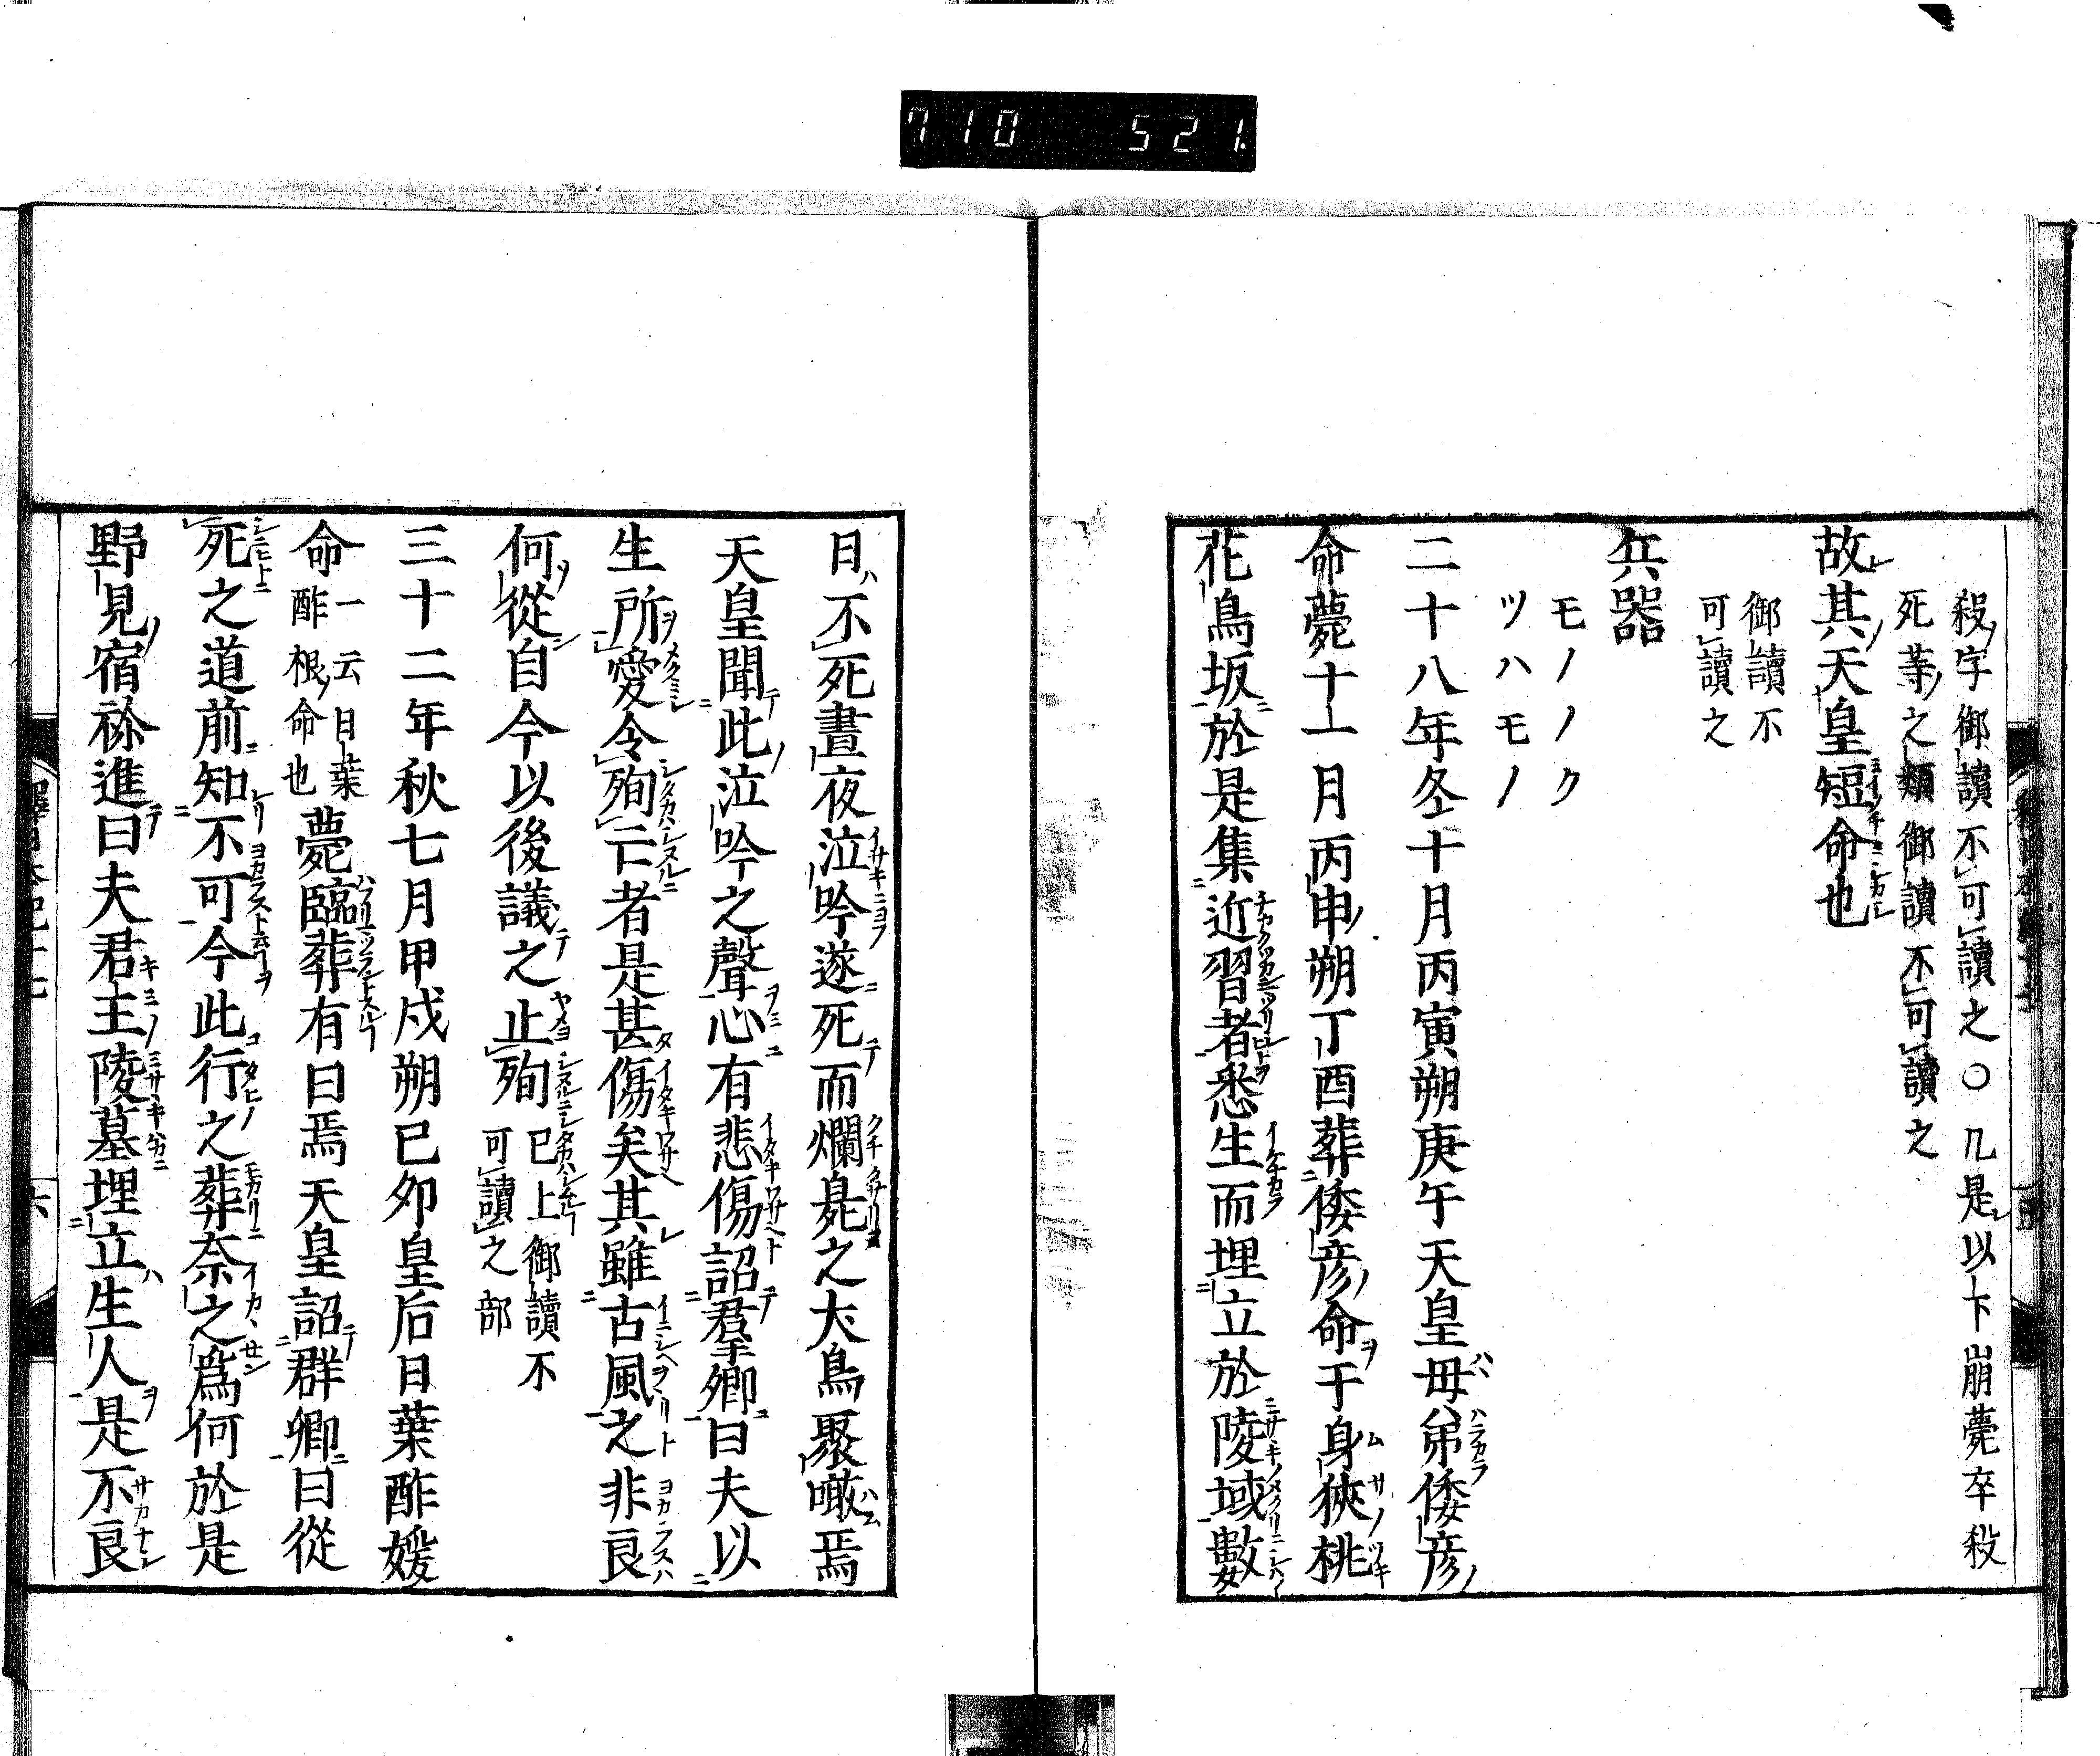 710 521
殺字御讀不可讀之〇凡是以下崩薨卒殺
死等之類御讀不可讀之
故其天皇短命也
御讀不
可讀之
兵器
モノノク
ツハモノ
二十八年冬十月丙寅朔庚午天皇母弟倭彦
命薨十一月丙申朔丁酉葬倭彦命于身狹桃
花鳥坂於是集近習者悉生而埋立於陵域數
日不死晝夜泣吟遂死而爛臰之犬鳥聚噉焉
天皇聞此泣吟之聲心有悲傷詔羣卿曰夫以
生所愛令殉亡者是甚傷矣其雖古風之非良
何從自今以後議之止殉
已上御讀不
可讀之部
三十二年秋七月甲戌朔己卯皇后日葉酢媛
命
一云日葉
酢根命也
薨臨葬有日焉天皇詔群卿曰從
死之道前知不可今此行之葬奈之爲何於是
野見宿祢進曰夫君王陵墓埋立生人是不良
六